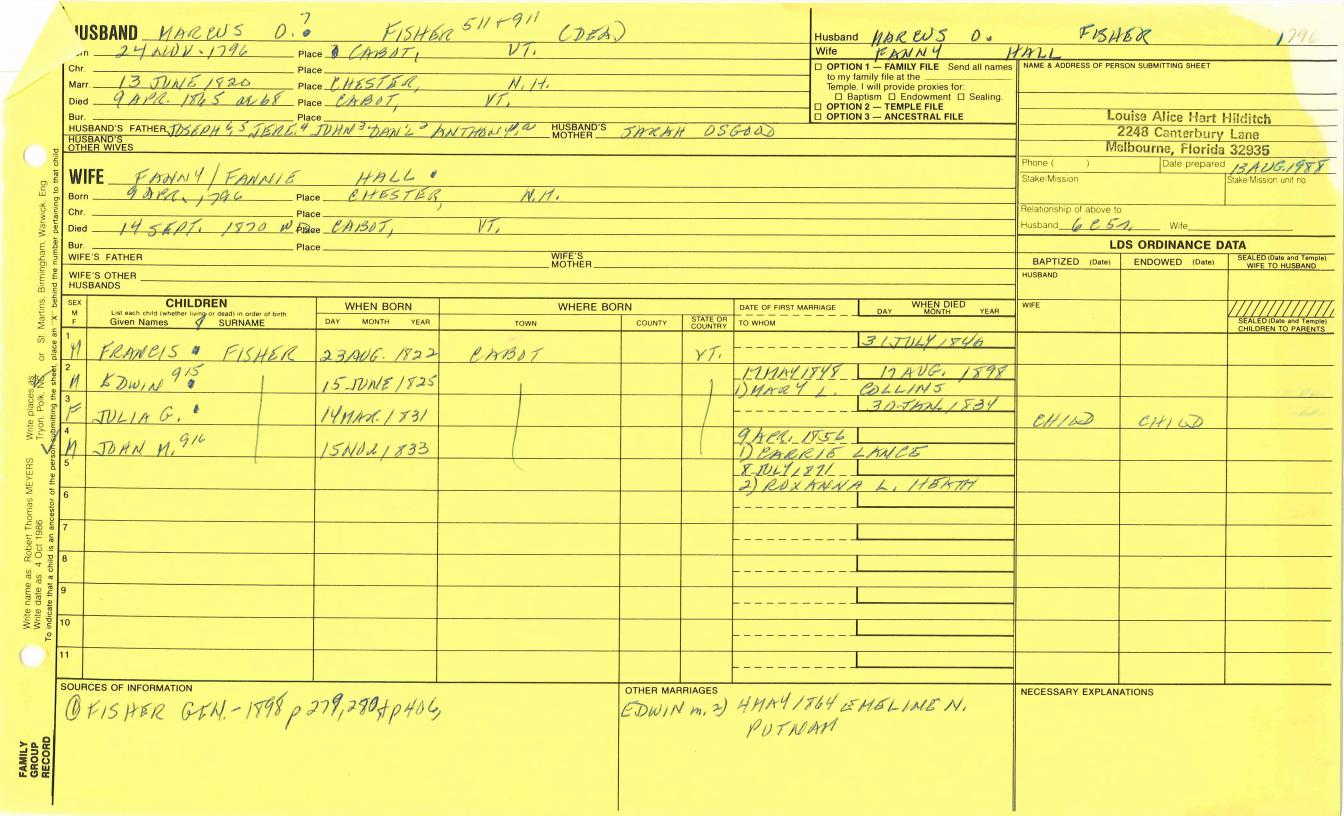 HUSBAND MARCUS O. 7 FISHER 511+911 (DEA)
24 NOV. 1796 Place CABOT, VT.
Chr. Place
Marr 13 JUNE 1820 Place CHESTER, N.H.
Died 9 APR. 1865 or 68 Place CABOT, VT.
Bur. Place
HUSBAND'S FATHER JOSEPH 6, 5 JERE. 4 JOHN 3 DAN'L 2 ANTHONY HUSBAND'S MOTHER SARAH OSGOOD
HUSBAND'S OTHER WIVES
Husband MARCUS O. FISHER 1796
Wife FANNY HALL
☐ OPTION 1 — FAMILY FILE Send all names
to my family file at the
Temple. I will provide proxies for:
☐ Baptism ☐ Endowment ☐ Sealing.
☐ OPTION 2 — TEMPLE FILE
☐ OPTION 3 — ANCESTRAL FILE
NAME & ADDRESS OF PERSON SUBMITTING SHEET
Louise Alice Hart Hilditch
2248 Canterbury Lane
Melbourne, Florida 32935
Phone ( ) Date prepared 13 AUG. 1988
Stake-Mission Stake-Mission unit no.
Relationship of above to
Husband 6 C 5 r. Wife
WIFE FANNY/FANNIE HALL
Born 9 APR. 1796 Place CHESTER, N.H.
Chr. Place
Died 14 SEPT. 1870 Place CABOT, VT.
Bur. Place
WIFE'S FATHER WIFE'S MOTHER
WIFE'S OTHER HUSBANDS
LDS ORDINANCE DATA
BAPTIZED (Date) ENDOWED (Date) SEALED (Date and Temple) WIFE TO HUSBAND
HUSBAND
WIFE
SEALED (Date and Temple) CHILDREN TO PARENTS
SEX M F
CHILDREN
List each child (whether living or dead) in order of birth
Given Names SURNAME
WHEN BORN
DAY MONTH YEAR
WHERE BORN
TOWN COUNTY STATE OR COUNTRY
DATE OF FIRST MARRIAGE
TO WHOM
WHEN DIED
DAY MONTH YEAR
1 M FRANCIS FISHER 23 AUG. 1822 CABOT VT. 31 JULY 1846
2 M EDWIN 915 15 JUNE 1825 17 MAY 1848 17 AUG. 1898
1) MARY L. COLLINS
3 F JULIA G. 14 MAR. 1831 30 JAN. 1834 CHILD CHILD
4 M JOHN M. 916 15 NOV. 1833 9 APR. 1856
1) CARRIE LANCE
5 8 JULY 1871
2) ROXANNA L. HEATH
6
7
8
9
10
11
SOURCES OF INFORMATION
① FISHER GEN. - 1898 p 279, 280 + p 406,
OTHER MARRIAGES
EDWIN m. 2) 4 MAY 1864 EMELINE N.
PUTNAM
NECESSARY EXPLANATIONS
Write name as: Robert Thomas MEYERS Write places as: Tryon, Polk, NC or St Martins, Birmingham, Warwick, Eng
Write date as: 4 Oct 1986
To indicate that a child is an ancestor of the person submitting the sheet, place an "X" behind the number pertaining to that child.
FAMILY
GROUP
RECORD